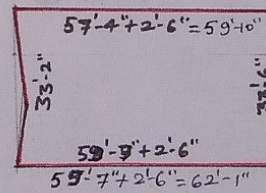 57'-4"+2'-6"=59'-10"
33'-2"
33'-6"
59'-7"+2'-6"
59'-7"+2'-6"=62'-1"